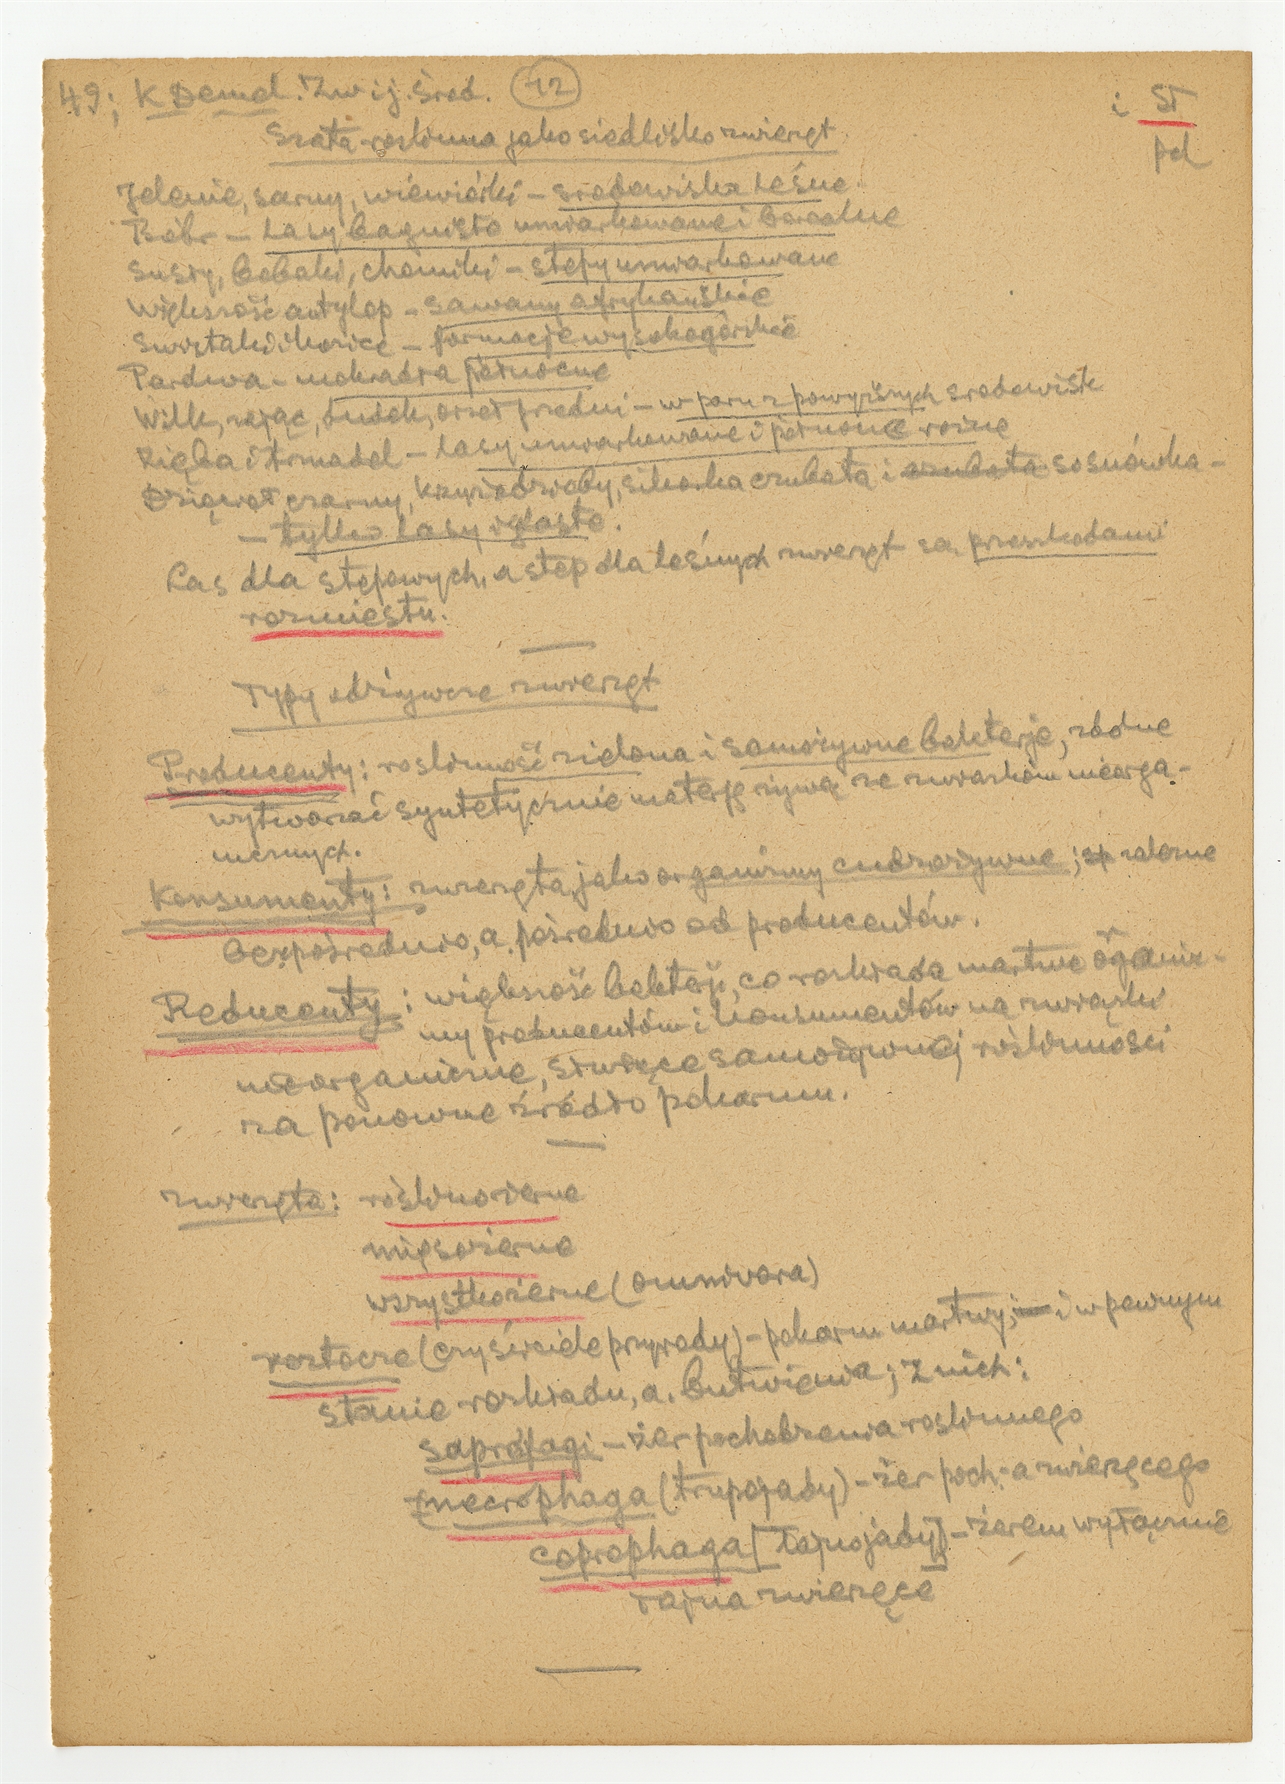 49; K Demel. Zw i j. Środ. 12
i ST
pd
Szata roślinna jako siedlisko zwierząt
Jelenie, sarny, wiewiórki – środowiska leśne
Bóbr – lasy bagnisto umiarkowane i borealne
Susły, bobaki, chomiki – stepy umiarkowane
Większość antylop – sawany afrykańskie
Świstaki i kozice – formacje wysokogórskie
Pardwa – mokradła północne
Wilk, zając, dudek, orzeł przedni – w paru z powyższych środowisk
Zięba i trznadel – lasy umiarkowane i północne różne
Dzięcioł czarny, krzyżodzioby, sikorka czubata i czubata sosnówka –
– tylko lasy iglaste.
Las dla stepowych, a step dla leśnych zwierząt są przeszkodami
rozmieszcz.
Typy odżywcze zwierząt
Producenty: roślinność zielona i samożywne bakterje, zdolne
wytwarzać syntetycznie materję żywą ze związków nieorga-
nicznych.
Konsumenty: zwierzęta, jako organizmy cudzożywne; zależne
bezpośrednio, a. pośrednio od producentów.
Reducenty: większość bakterji, co rozkłada martwe organiz-
my producentów i konsumentów na związki
nieorganiczne, służące samożywnej roślinności
za ponowne źródło pokarmu.
Zwierzęta: roślinożerne
mięsożerne
wszystkożerne (omnivora)
roztocze (czyściciele przyrody) – pokarm martwy, i w pewnym
stanie rozkładu, a. butwienia; z nich:
saprofagi – żer pochodzenia roślinnego
necrophaga (trupojady) – żer poch-a zwierzęcego
coprophaga [łajnojady] – żerem wyłącznie
łajna zwierzęce